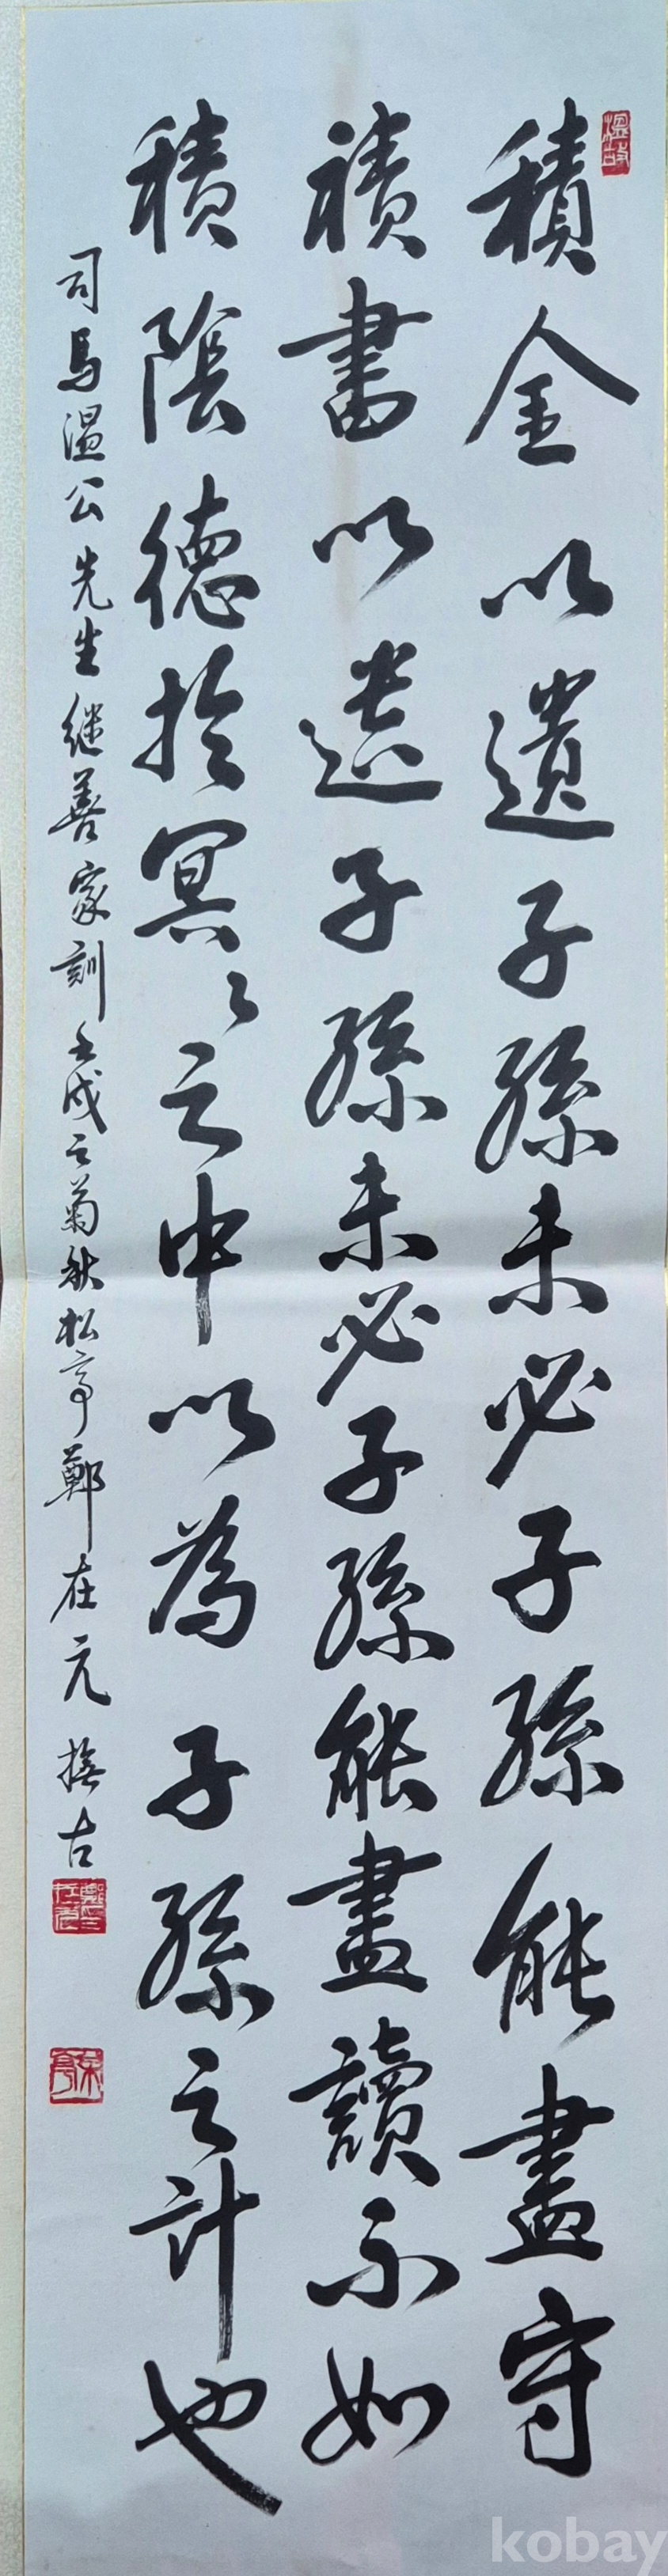 積金以遺子孫未必子孫能盡守
積書以遺子孫未必子孫能盡讀不如
積陰德於冥〻之中以為子孫之計也
司馬溫公先生继善家訓 壬戌之菊秋松亭鄭在元 撫古
溫故
kobay